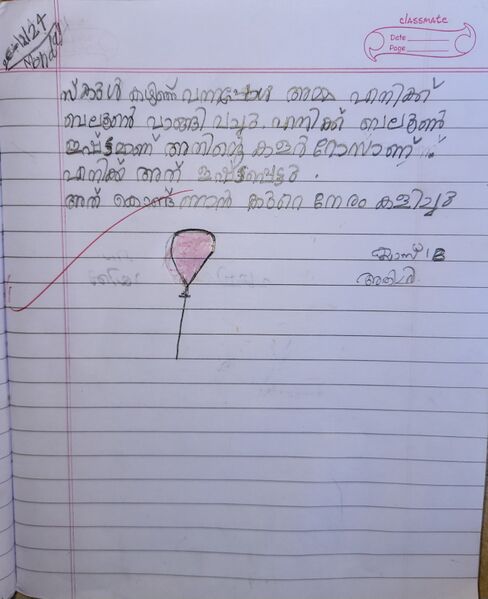 classmate
Date
Page
Monday
സ്കൂൾ കഴിഞ്ഞ് വന്നപ്പോൾ അമ്മ എനിക്ക്
ബലൂൺ വാങ്ങി വച്ചു. എനിക്ക് ബലൂൺ
ഇഷ്ട്ടമാണ് അതിന്റെ കളർ റോസാണ്.
എനിക്ക് അത് ഇഷ്ട്ടപ്പെട്ടു.
അത് കൊണ്ട് ഞാൻ കുറെ നേരം കളിച്ചു
ക്ലാസ് 1B